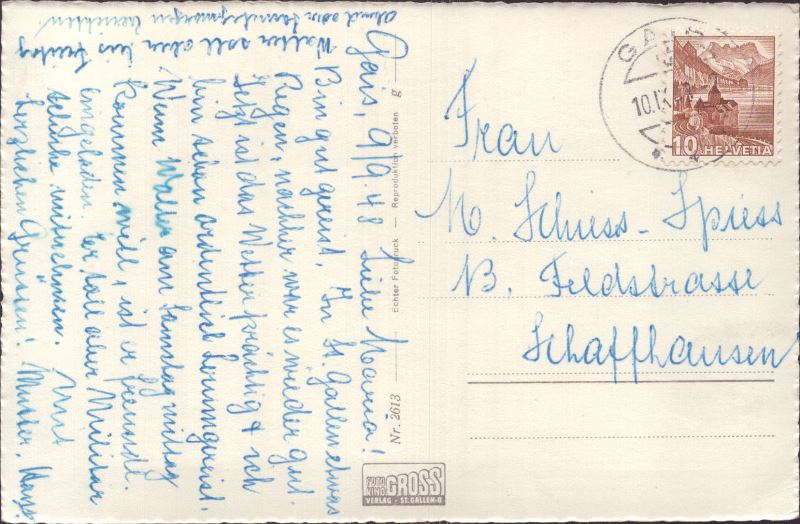 Gais, 9/9.48 Liebe Maria!
Bin gut gereist. In St. Gallen etwas
Regen, nachher war es wieder gut.
Jetzt ist das Wetter prächtig & ich
bin schon ordentlich herumgereist.
Wenn Walter am Samstag mittag
kommen will, ist er freundl.
eingeladen. Er soll aber Militär
schuhe mitnehmen. Mit
herzlichen Grüssen! Mutter,
Walter soll aber bis Freitag
abend oder Samstagmorgen berichten
Nr. 2613
Echter Fotodruck — Reproduktion verboten g
FOTO KINO GROSS
VERLAG - ST. GALLEN-O
GAIS
10.IX.48
10 HELVETIA
Frau
M. Schiess-Spiess
B. Feldstrasse
Schaffhausen